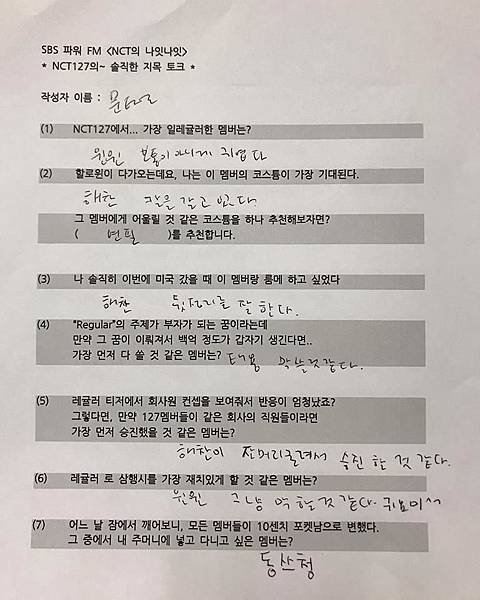 SBS 파워 FM <NCT의 나잇나잇>
* NCT127의~ 솔직한 지목 토크 *
작성자 이름 : 문태일
(1) NCT127에서... 가장 일레귤러한 멤버는?
윈윈 보통이 아니게 귀엽다
(2) 할로윈이 다가오는데요, 나는 이 멤버의 코스튬이 가장 기대된다.
해찬 칼을 갈고 있다
그 멤버에게 어울릴 것 같은 코스튬을 하나 추천해보자면?
( 연필 )를 추천합니다.
(3) 나 솔직히 이번에 미국 갔을 때 이 멤버랑 룸메 하고 싶었다
해찬 뒷정리를 잘 한다.
(4) "Regular"의 주제가 부자가 되는 꿈이라는데
만약 그 꿈이 이뤄져서 백억 정도가 갑자기 생긴다면..
가장 먼저 다 쓸 것 같은 멤버는? 태용 막 쓸것같다.
(5) 레귤러 티저에서 회사원 컨셉을 보여줘서 반응이 엄청났죠?
그렇다면, 만약 127멤버들이 같은 회사의 직원들이라면
가장 먼저 승진했을 것 같은 멤버는?
해찬이 잔머리굴려서 승진 할 것 같다.
(6) 레귤러 로 삼행시를 가장 재치있게 할 것 같은 멤버는?
윈윈 그냥 막 할것 같다. 귀요미^^
(7) 어느 날 잠에서 깨어보니, 모든 멤버들이 10센치 포켓남으로 변했다.
그 중에서 내 주머니에 넣고 다니고 싶은 멤버는?
동쓰청